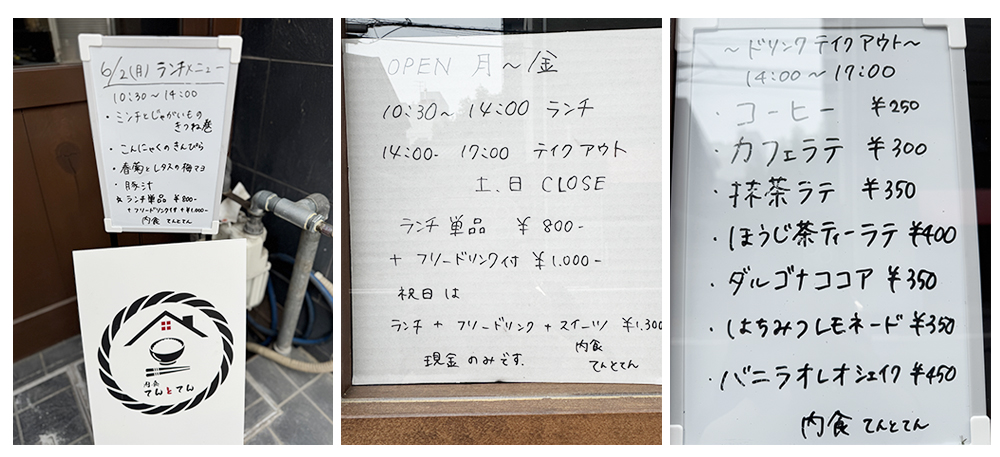 6/2(月) ランチメニュー
10:30～14:00
・ミンチとじゃがいもの
きつね巻
・こんにゃくのきんぴら
・春菊とレタスの梅マヨ
・豚汁
☆ランチ単品 ¥800-
+フリードリンク付 ¥1,000-
内食 てんとてん
内食
てんとてん
OPEN 月～金
10:30～14:00 ランチ
14:00-17:00 テイクアウト
土、日 CLOSE
ランチ単品 ¥800-
+フリードリンク付 ¥1,000-
祝日は
ランチ+フリードリンク+スイーツ ¥1,300
内食
てんとてん
現金のみです.
～ドリンクテイクアウト～
14:00～17:00
・コーヒー ¥250
・カフェラテ ¥300
・抹茶ラテ ¥350
・ほうじ茶ティーラテ ¥400
・ダルゴナココア ¥350
・はちみつレモネード ¥350
・バニラオレオシェイク ¥450
内食 てんとてん